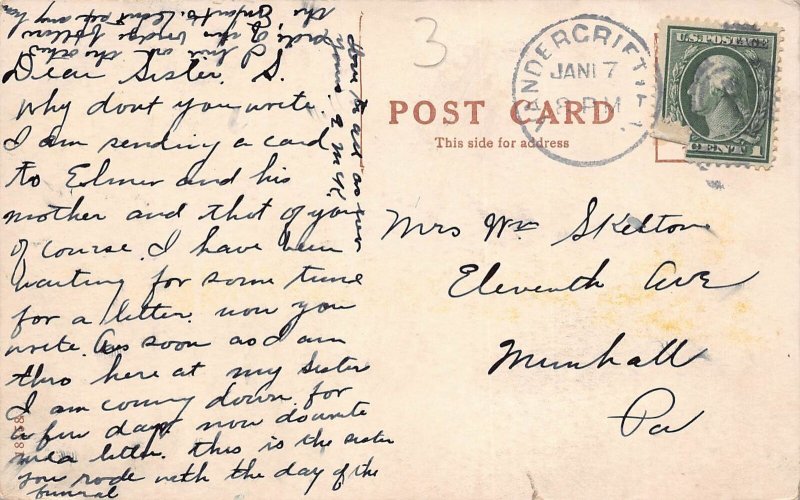 Dear Sister. S.
why dont you write.
I am sending a card
to Elmer and his
mother and that of you
of course. I have been
waiting for some time
for a letter. now you
write. as soon as I am
thro here at my sister
I am coming down for
a few days. now
me a letter. this is the sister
you rode with the day of the
funeral
yours. E M K.
3
POST CARD
This side for address
VANDERGRIFT
JAN 17
8 PM
U.S. POSTAGE
1 CENT 1
Mrs Wm Skelton
Eleventh Ave
Munhall
Pa